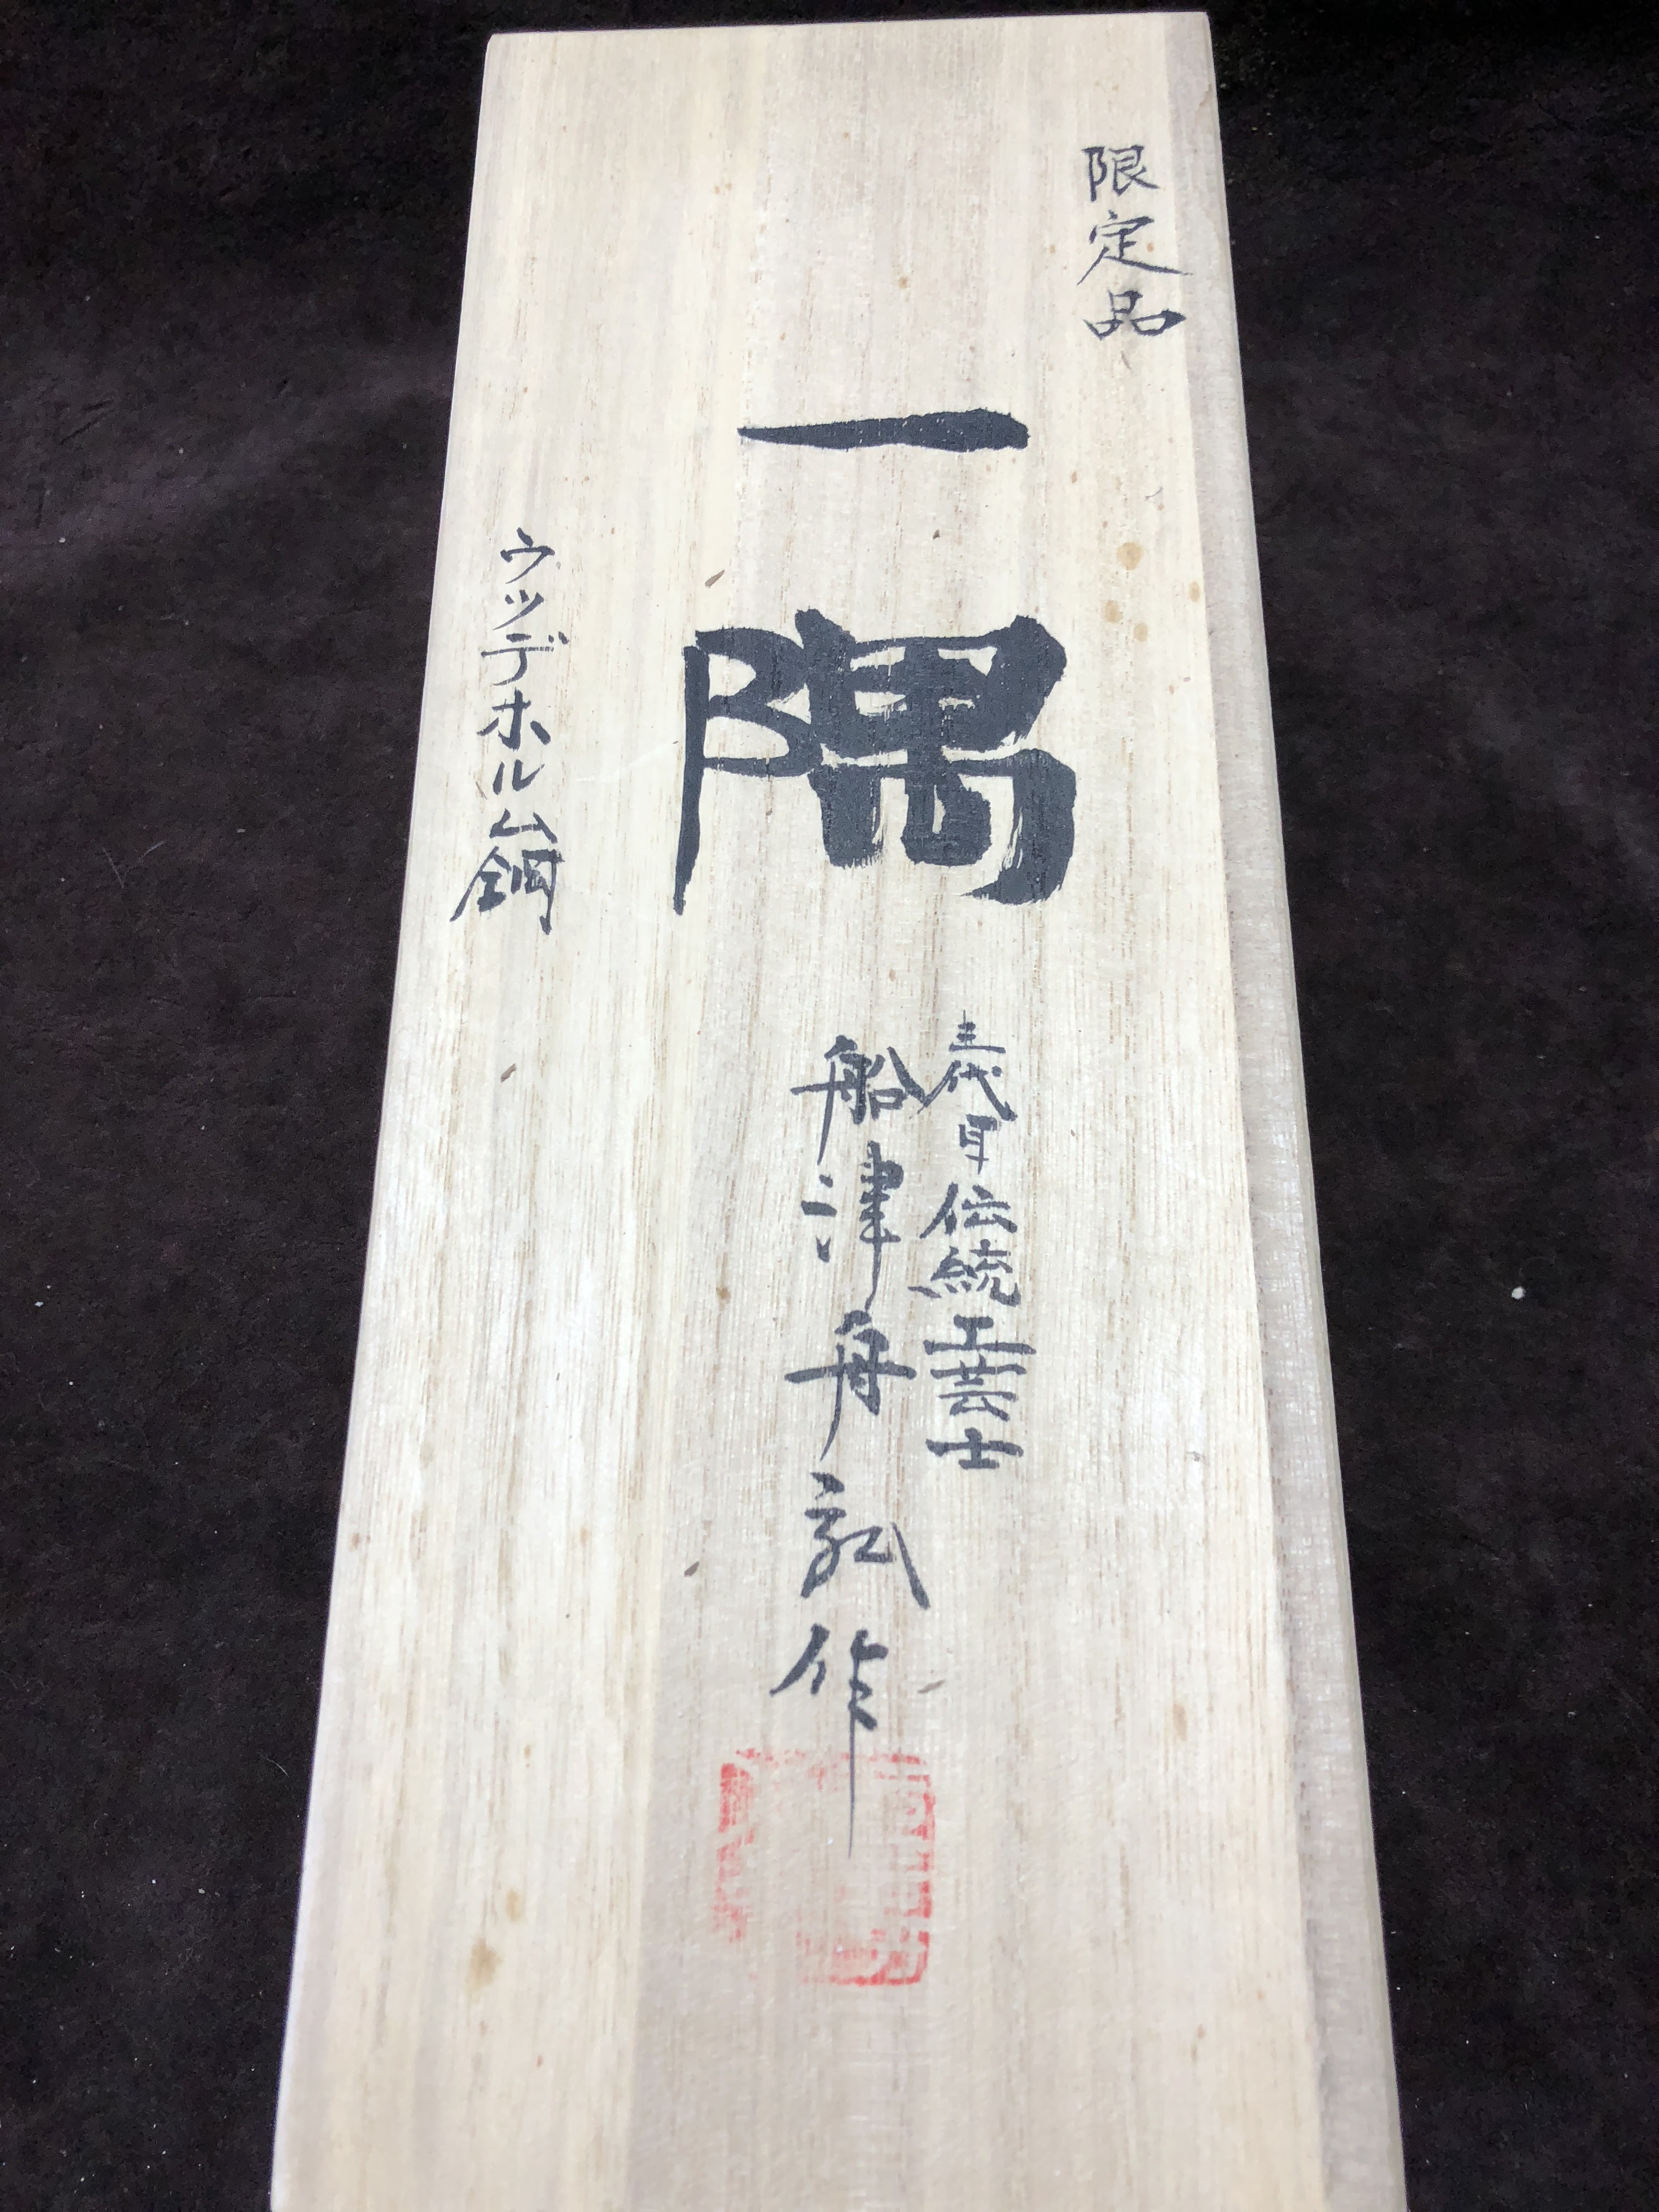 限定品
一隅
三代目伝統工芸士
船津舟記作
ウッデホルム鋼